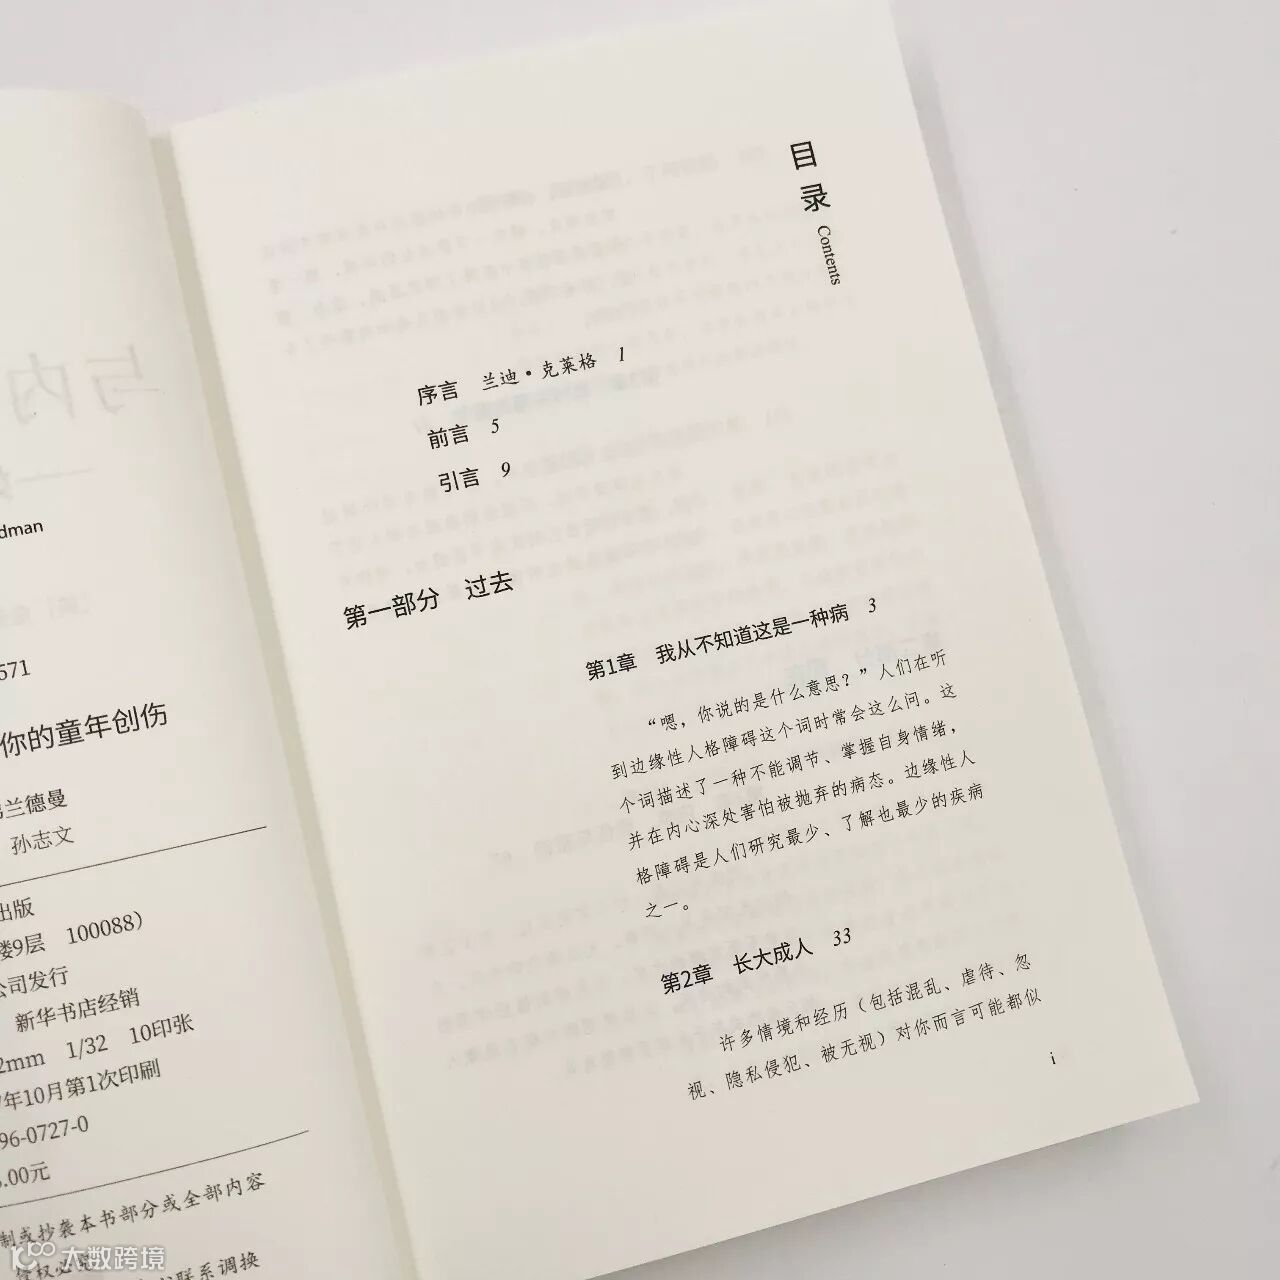 dman
671
你的童年创伤
弗兰德曼
孙志文
出版
楼9层 100088）
公司发行
新华书店经销
2mm 1/32 10印张
年10月第1次印刷
96-0727-0
.00元
制或抄袭本书部分或全部内容
侵权必究
联系调换
大数跨境
目录
Contents
序言 兰迪·克莱格 1
前言 5
引言 9
第一部分 过去
第1章 我从不知道这是一种病 3
“嗯，你说的是什么意思？”人们在听
到边缘性人格障碍这个词时常会这么问。这
个词描述了一种不能调节、掌握自身情绪，
并在内心深处害怕被抛弃的病态。边缘性人
格障碍是人们研究最少、了解也最少的疾病
之一。
第2章 长大成人 33
许多情境和经历（包括混乱、虐待、忽
视、隐私侵犯、被无视）对你而言可能都似
i